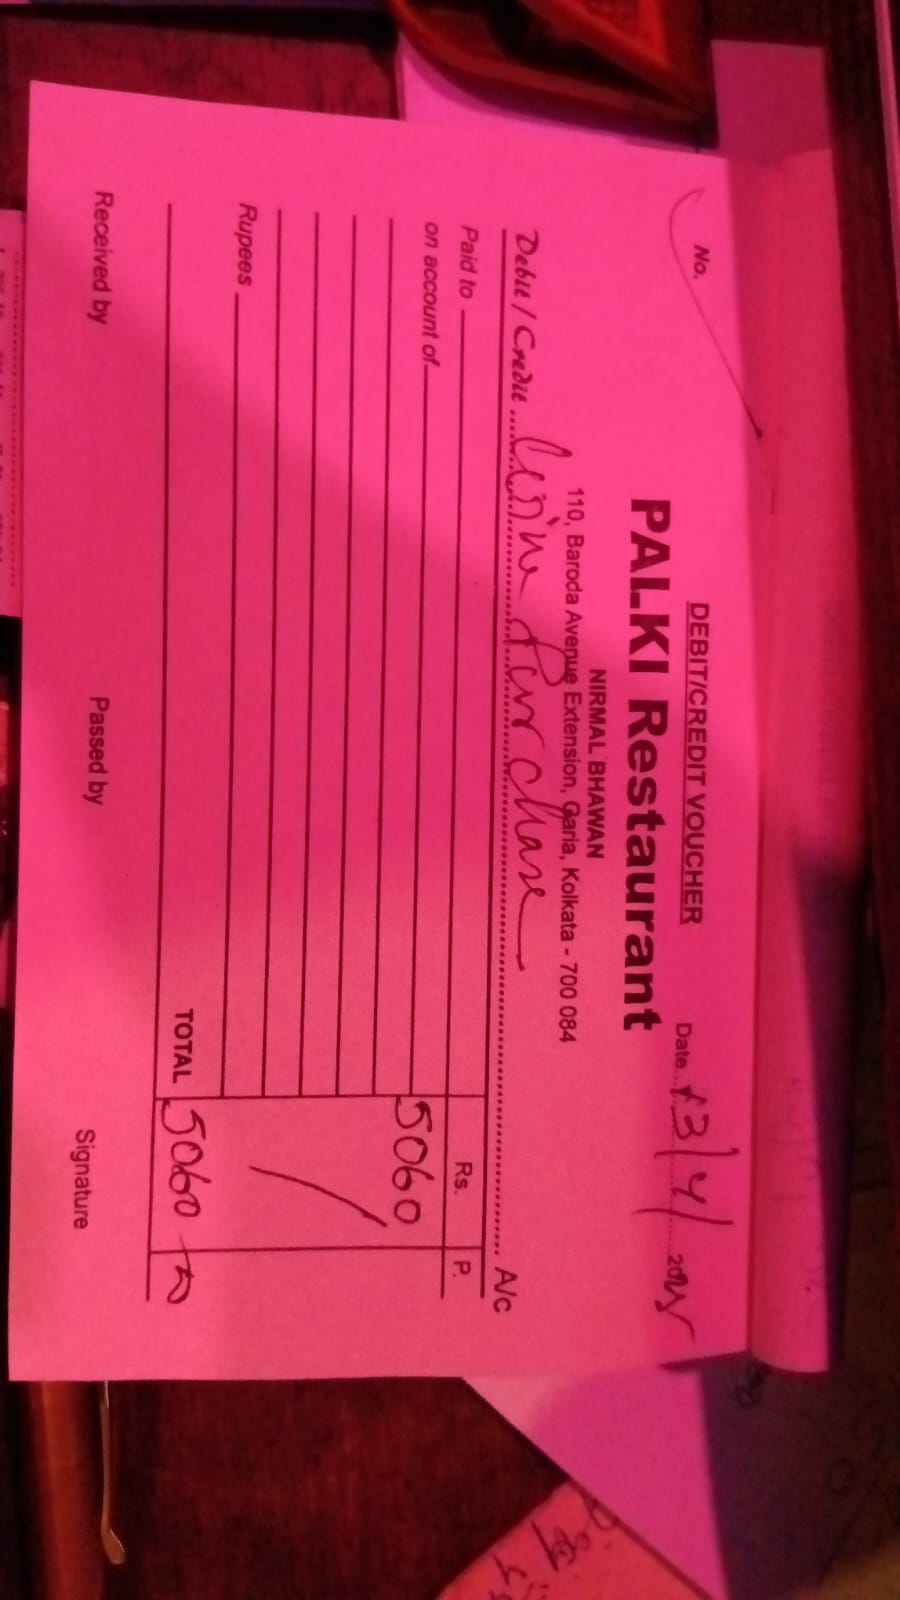 DEBIT/CREDIT VOUCHER
No.
Date 13/4/20
PALKI Restaurant
NIRMAL BHAWAN
110, Baroda Avenue Extension, Garia, Kolkata - 700 084
Debit / Credit Purchase A/c
Paid to
Rs. P.
on account of
5060
Rupees
TOTAL 5060
Received by Passed by Signature